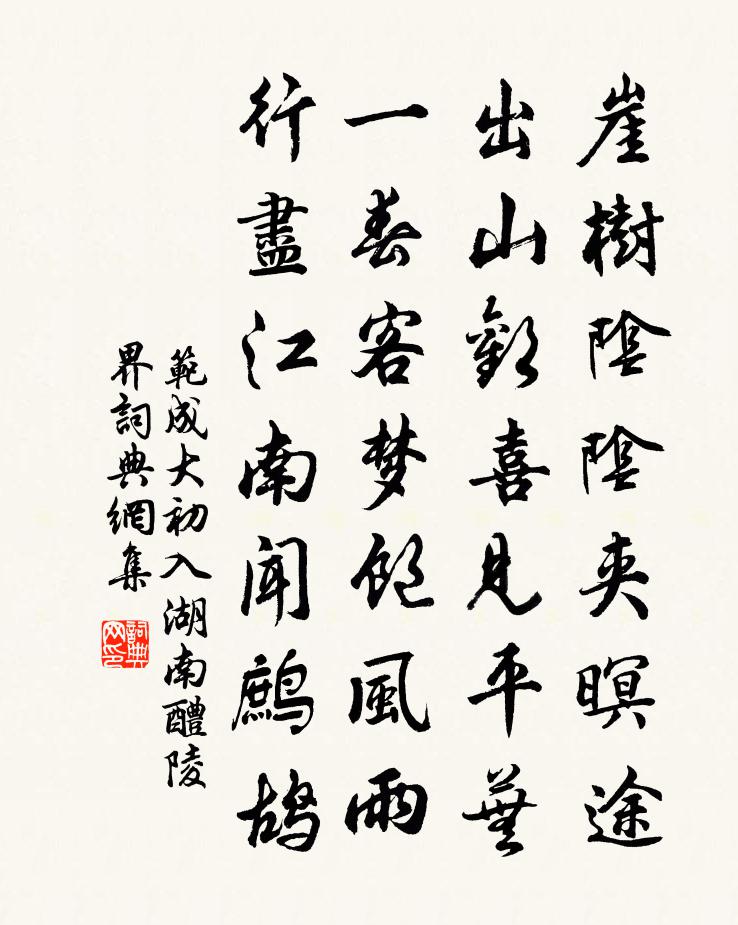 崖樹陰陰夾暝途
出山歡喜見平蕪
一春客夢飽風雨
行盡江南聞鷓鴣
範成大初入湖南醴陵
界詞典網集
詞典
网印